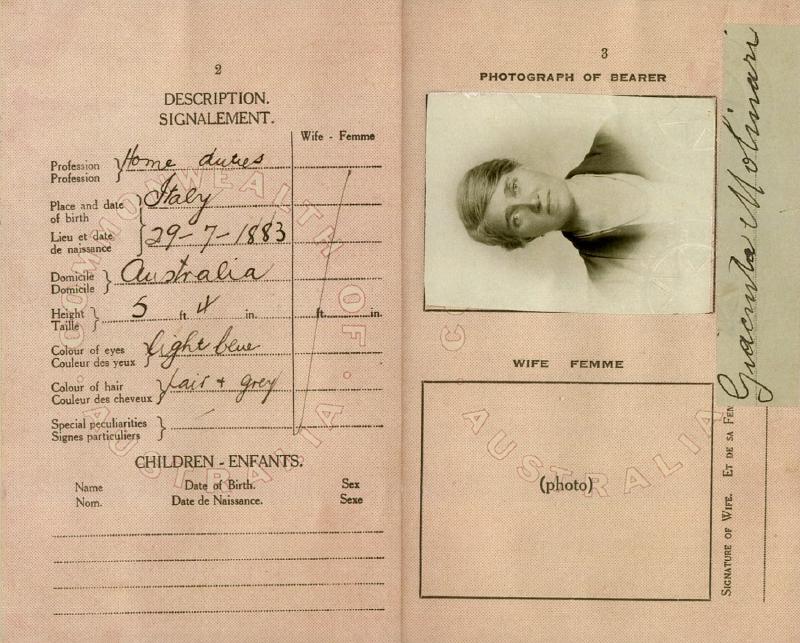 2
DESCRIPTION.
SIGNALEMENT.
Wife - Femme
Profession
Profession
Home duties
Place and date
of birth
Italy
Lieu et date
de naissance
29-7-1883
Domicile
Domicile
Australia
Height
Taille
5 ft. 4 in.
ft. in.
Colour of eyes
Couleur des yeux
light blue
Colour of hair
Couleur des cheveux
fair + grey
Special peculiarities
Signes particuliers
CHILDREN - ENFANTS.
Name Date of Birth. Sex
Nom. Date de Naissance. Sexe
COMMONWEALTH OF AUSTRALIA
3
PHOTOGRAPH OF BEARER
WIFE FEMME
(photo)
AUSTRALIA
Giacinta Molinari
SIGNATURE OF WIFE. ET DE SA FEM